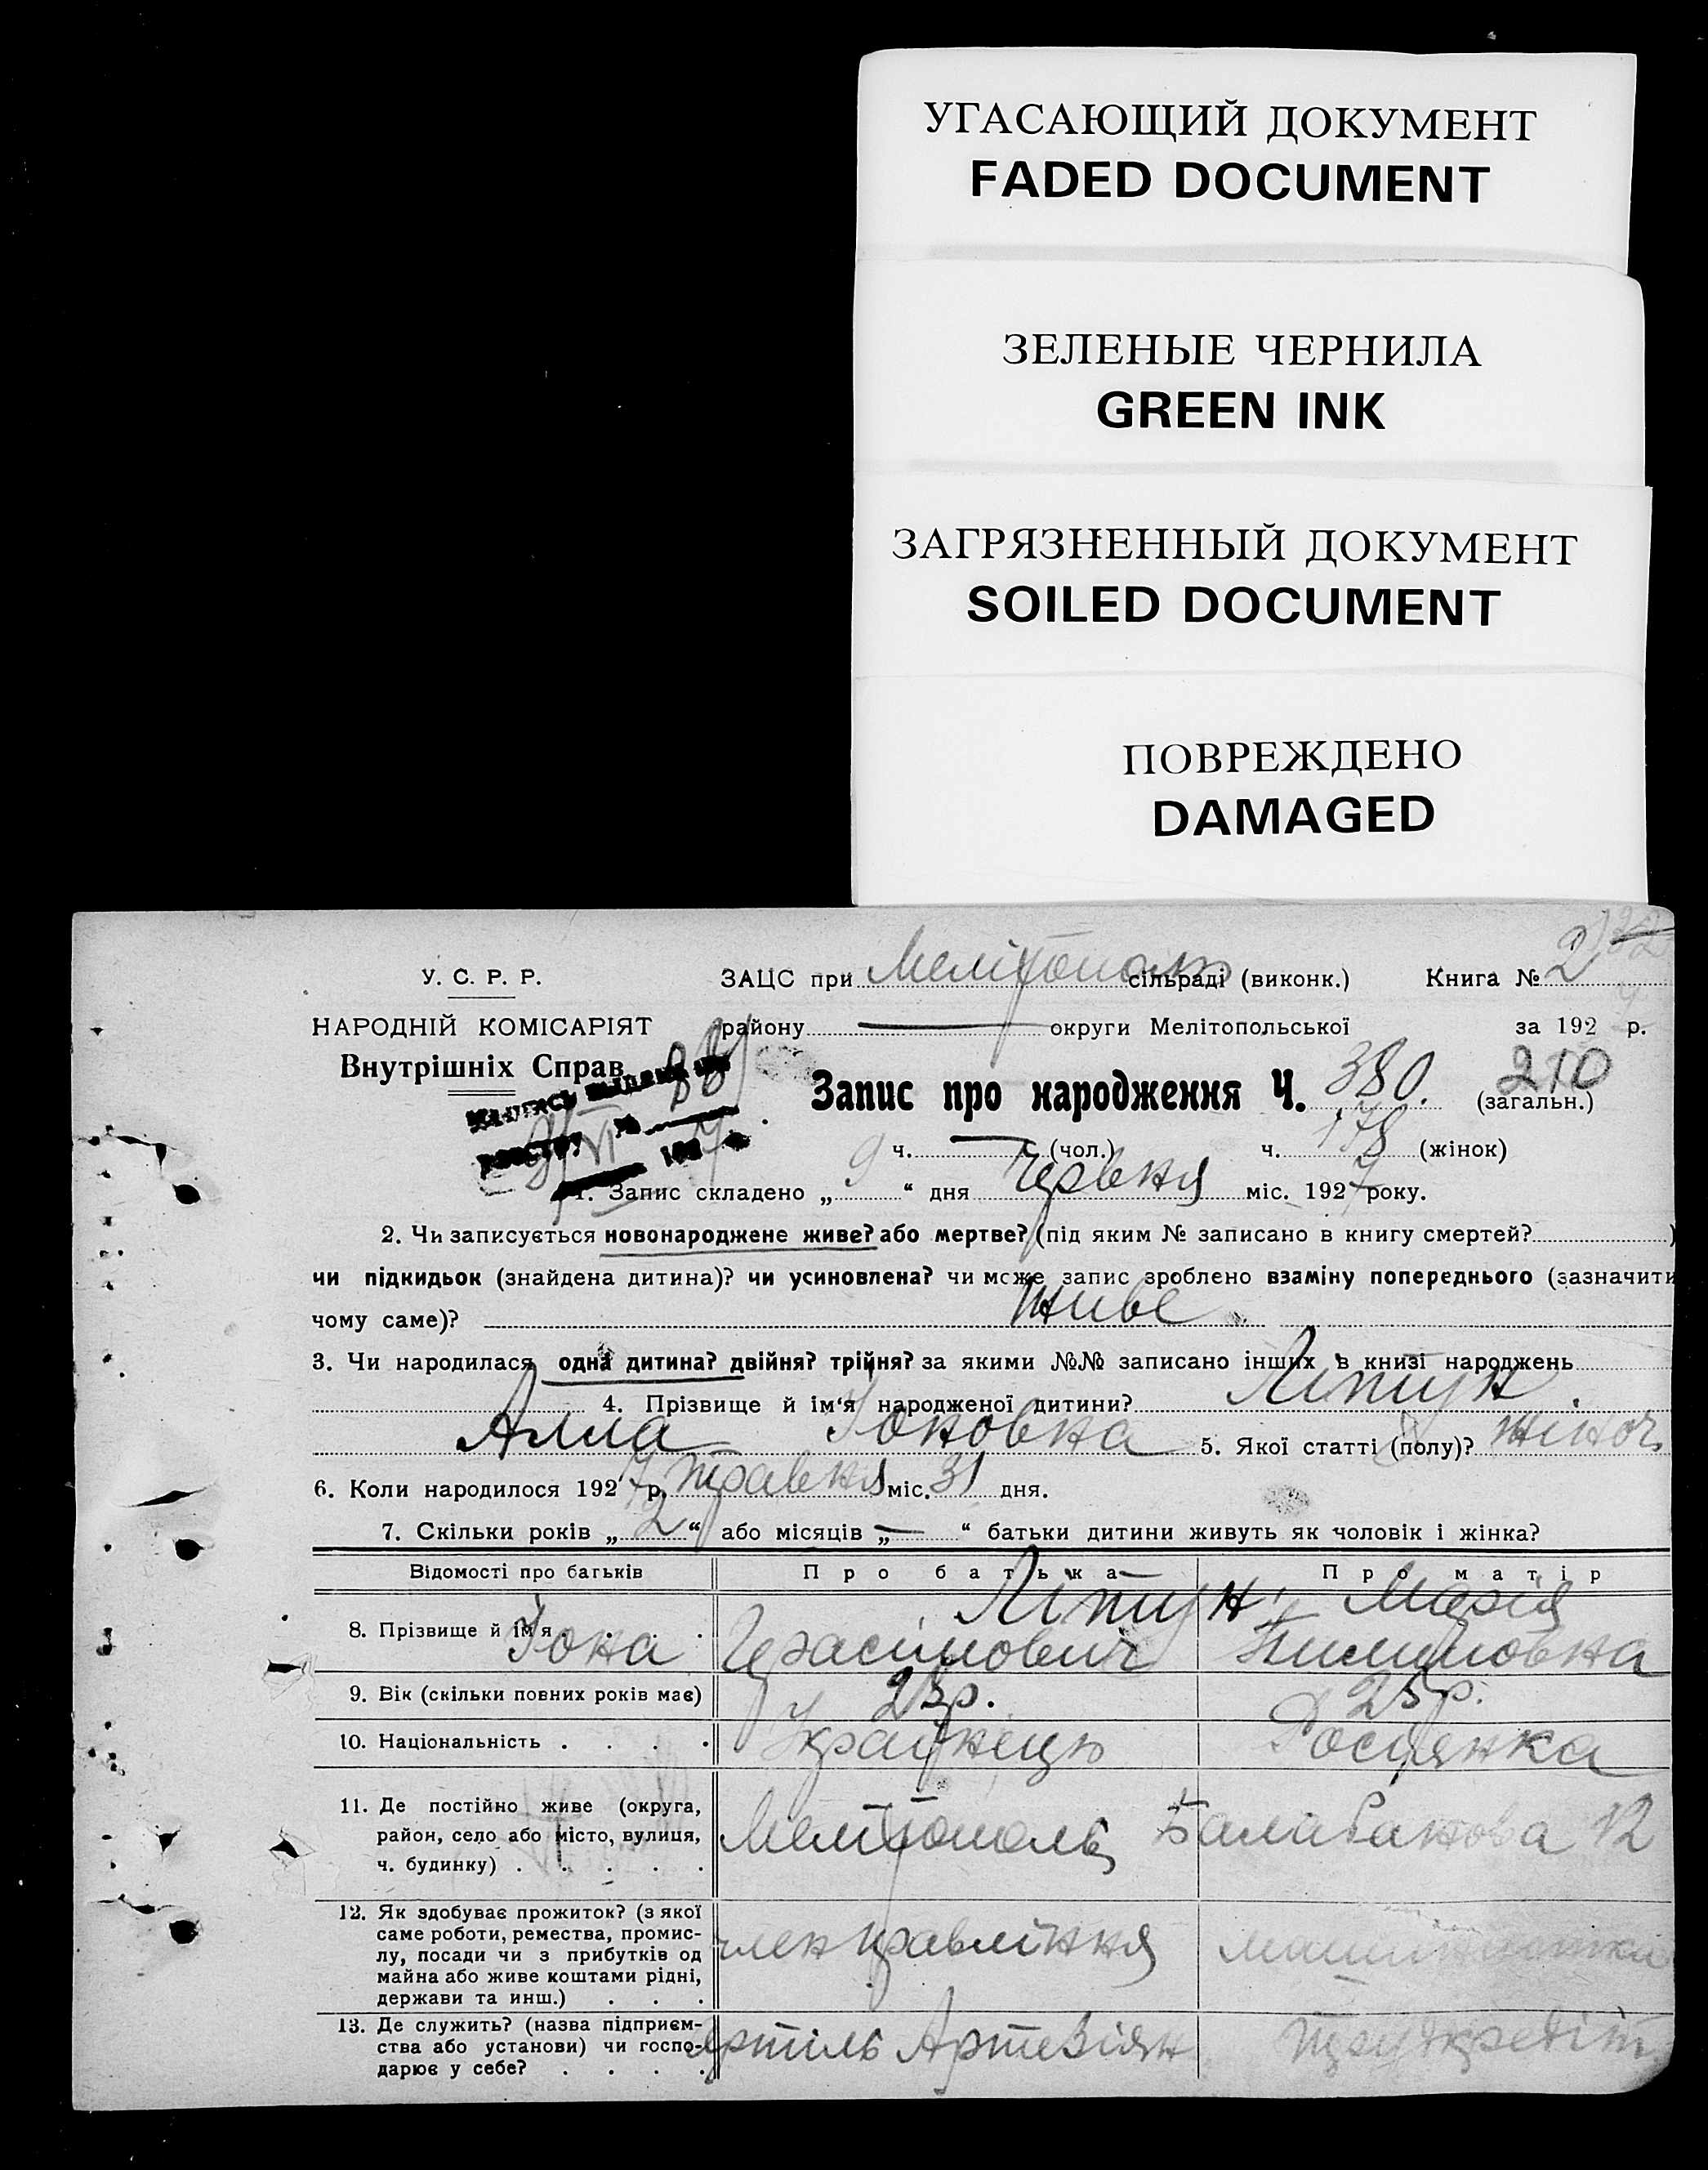 УГАСАЮЩИЙ ДОКУМЕНТ
FADED DOCUMENT
ЗЕЛЕНЫЕ ЧЕРНИЛА
GREEN INK
ЗАГРЯЗНЕННЫЙ ДОКУМЕНТ
SOILED DOCUMENT
ПОВРЕЖДЕНО
DAMAGED
У. С. Р. Р.
НАРОДНІЙ КОМІСАРІЯТ
Внутрішніх Справ
ЗАЦС при сільраді (виконк.) Книга № 2
району — округи Мелітопольської за 192 р.
Запис про народження Ч. 380. 210 (загальн.)
ч. — (чол.) ч. 178 (жінок)
1. Запис складено „ 9 “ дня Червня міс. 1927 року.
2. Чи записується новонароджене живе? або мертве? (під яким № записано в книгу смертей? )
чи підкидьок (знайдена дитина)? чи усиновлена? чи може запис зроблено взаміну попереднього (зазначити
чому саме)? живе
3. Чи народилася одна дитина? двійня? трійня? за якими №№ записано інших в книзі народжень
4. Прізвище й ім‘я народженої дитини? Ліпцун.
Алла Іоновна 5. Якої статті (полу)? жіноч.
6. Коли народилося 1927 р. травня міс. 31 дня.
7. Скільки років „ 2 “ або місяців „ — “ батьки дитини живуть як чоловік і жінка?
Відомості про батьків Про батька Про матір
8. Прізвище й ім‘я Іона Герасімович Марія
9. Вік (скільки повних років має) 23р. 25р.
10. Національність Українець Росіянка
11. Де постійно живе (округа,
район, село або місто, вулиця,
ч. будинку) Мелітополь 12
12. Як здобуває прожиток? (з якої
саме роботи, ремества, промис-
лу, посади чи з прибутків од
майна або живе коштами рідні,
держави та инш.) член правління
13. Де служить? (назва підприєм-
ства або установи) чи госпо-
дарює у себе? Артіль Артезіян